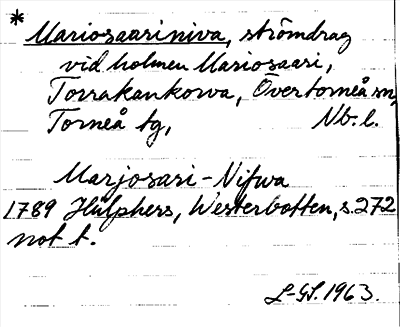 * Mariosaariniva, strömdrag
vid holmen Mariosaari,
Torrakankorva, Övertorneå sn,
Torneå tg, Nb. l.
Marjosari-Nifwa
1789 Hülphers, Westerbotten, s. 272
not t.
L-GS. 1963.